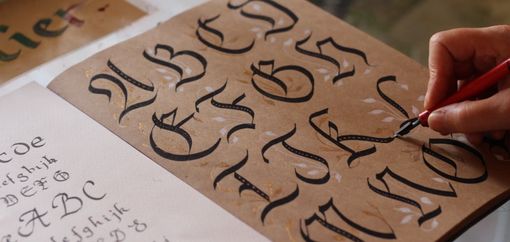 tier
A B C D
E F G H
I J K L
M N O
C De
efghijk
DEFG
ABC
efghijk